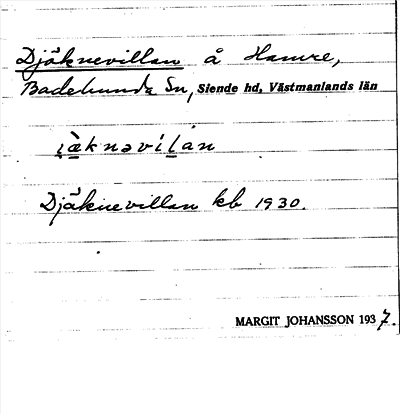 Djäknevillan å Hamre,
Badelunda Sn, Siende hd, Västmanlands län
i̯æknəvilan
Djäknevillan kb 1930.
MARGIT JOHANSSON 1937.